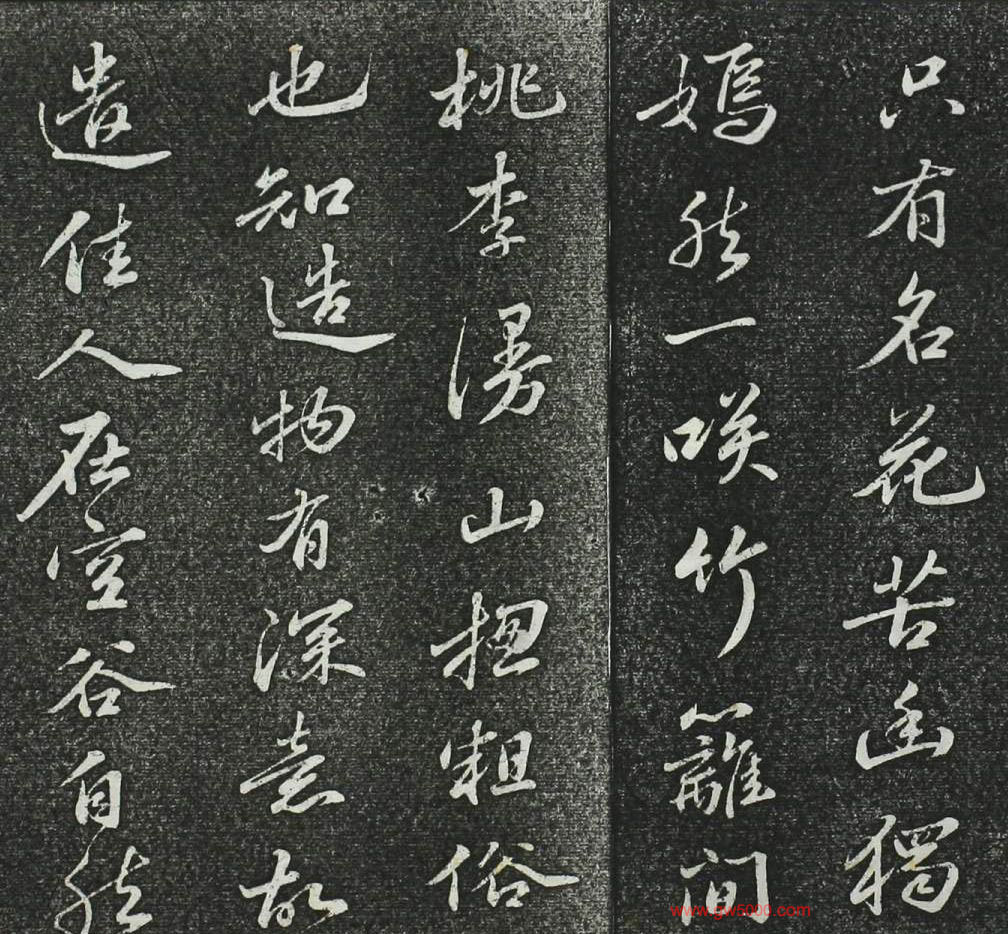 只有名花苦幽獨
嫣然一咲竹籬間
桃李漫山揔粗俗
也知造物有深意故
遣佳人在空谷自然
www.gw5000.com